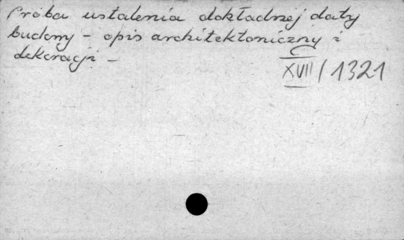 Próba ustalenia dokładnej daty
budowy - opis architektoniczny i
dekoracji -
XVII/1321